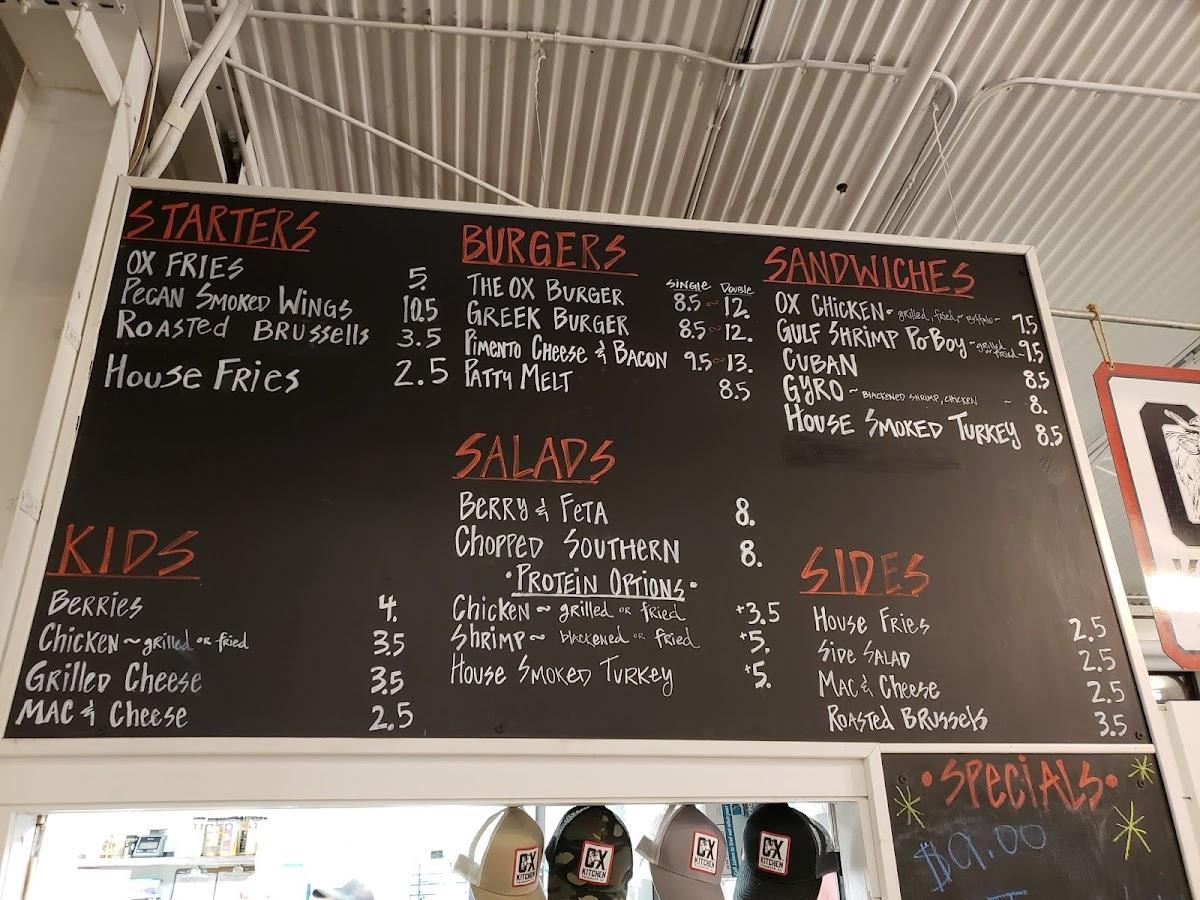 STARTERS
OX FRIES 5.
PECAN SMOKED WINGS 10.5
ROASTED BRUSSELLS 3.5
HOUSE FRIES 2.5
BURGERS
SINGLE DOUBLE
THE OX BURGER 8.5 ~ 12.
GREEK BURGER 8.5 ~ 12.
PIMENTO CHEESE & BACON 9.5 ~ 13.
PATTY MELT 8.5
SANDWICHES
OX CHICKEN ~ grilled, fried, or Buffalo ~ 7.5
GULF SHRIMP PO-BOY ~ grilled or fried ~ 9.5
CUBAN 8.5
GYRO ~ BLACKENED SHRIMP, CHICKEN ~ 8.
HOUSE SMOKED TURKEY 8.5
SALADS
BERRY & FETA 8.
CHOPPED SOUTHERN 8.
• PROTEIN OPTIONS •
CHICKEN ~ grilled OR fried +3.5
SHRIMP ~ BLACKENED OR fried +5.
HOUSE SMOKED TURKEY +5.
KIDS
BERRIES 4.
CHICKEN ~ grilled OR fried 3.5
GRILLED CHEESE 3.5
MAC & CHEESE 2.5
SIDES
HOUSE FRIES 2.5
SIDE SALAD 2.5
MAC & CHEESE 2.5
ROASTED BRUSSELS 3.5
• SPECIALS •
$9.00
OX KITCHEN
OX KITCHEN
OX KITCHEN
OX KITCHEN